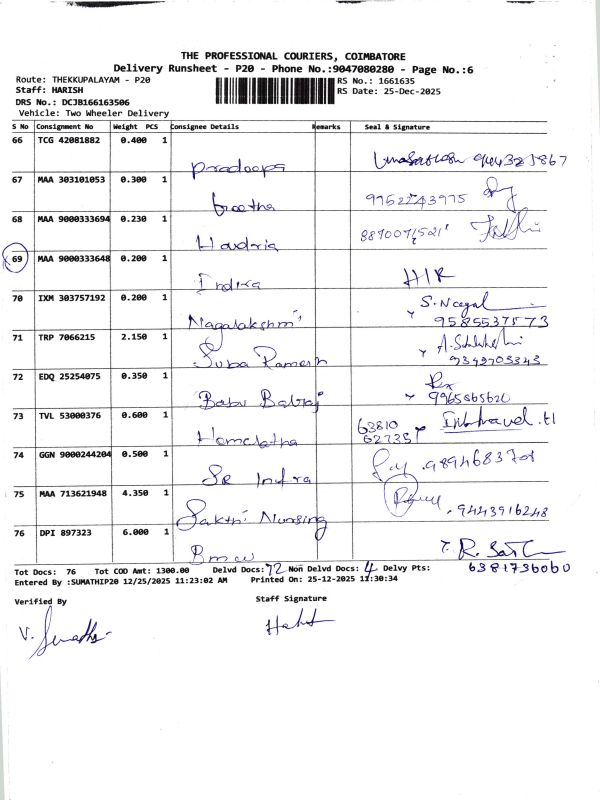 THE PROFESSIONAL COURIERS, COIMBATORE
Delivery Runsheet - P20 - Phone No.:9047080280 - Page No.:6
Route: THEKKUPALAYAM - P20
RS No.: 1661635
Staff: HARISH
RS Date: 25-Dec-2025
DRS No.: DCJB166163506
Vehicle: Two Wheeler Delivery
S No Consignment No Weight PCS Consignee Details Remarks Seal & Signature
66 TCG 42081882 0.400 1 Pradeepa
67 MAA 303101053 0.300 1 Geetha
68 MAA 9000333694 0.230 1
69 MAA 9000333648 0.200 1 Indira H/R
70 IXM 303757192 0.200 1 Nagalakshmi 9585537573
71 TRP 7066215 2.150 1 Suba Ramesh
72 EDQ 25254075 0.350 1 Babu Balraj Rex
73 TVL 53000376 0.600 1 Hemalatha 63810
74 GGN 9000244204 0.500 1 SR Indra
75 MAA 713621948 4.350 1 Sakthi Nursing 9443916248
76 DPI 897323 6.000 1 Bmw 6381736060
Tot Docs: 76 Tot COD Amt: 1300.00 Delvd Docs: 72 Non Delvd Docs: 4 Delvy Pts:
Entered By :SUMATHIP20 12/25/2025 11:23:02 AM Printed On: 25-12-2025 11:30:34
Verified By
Staff Signature